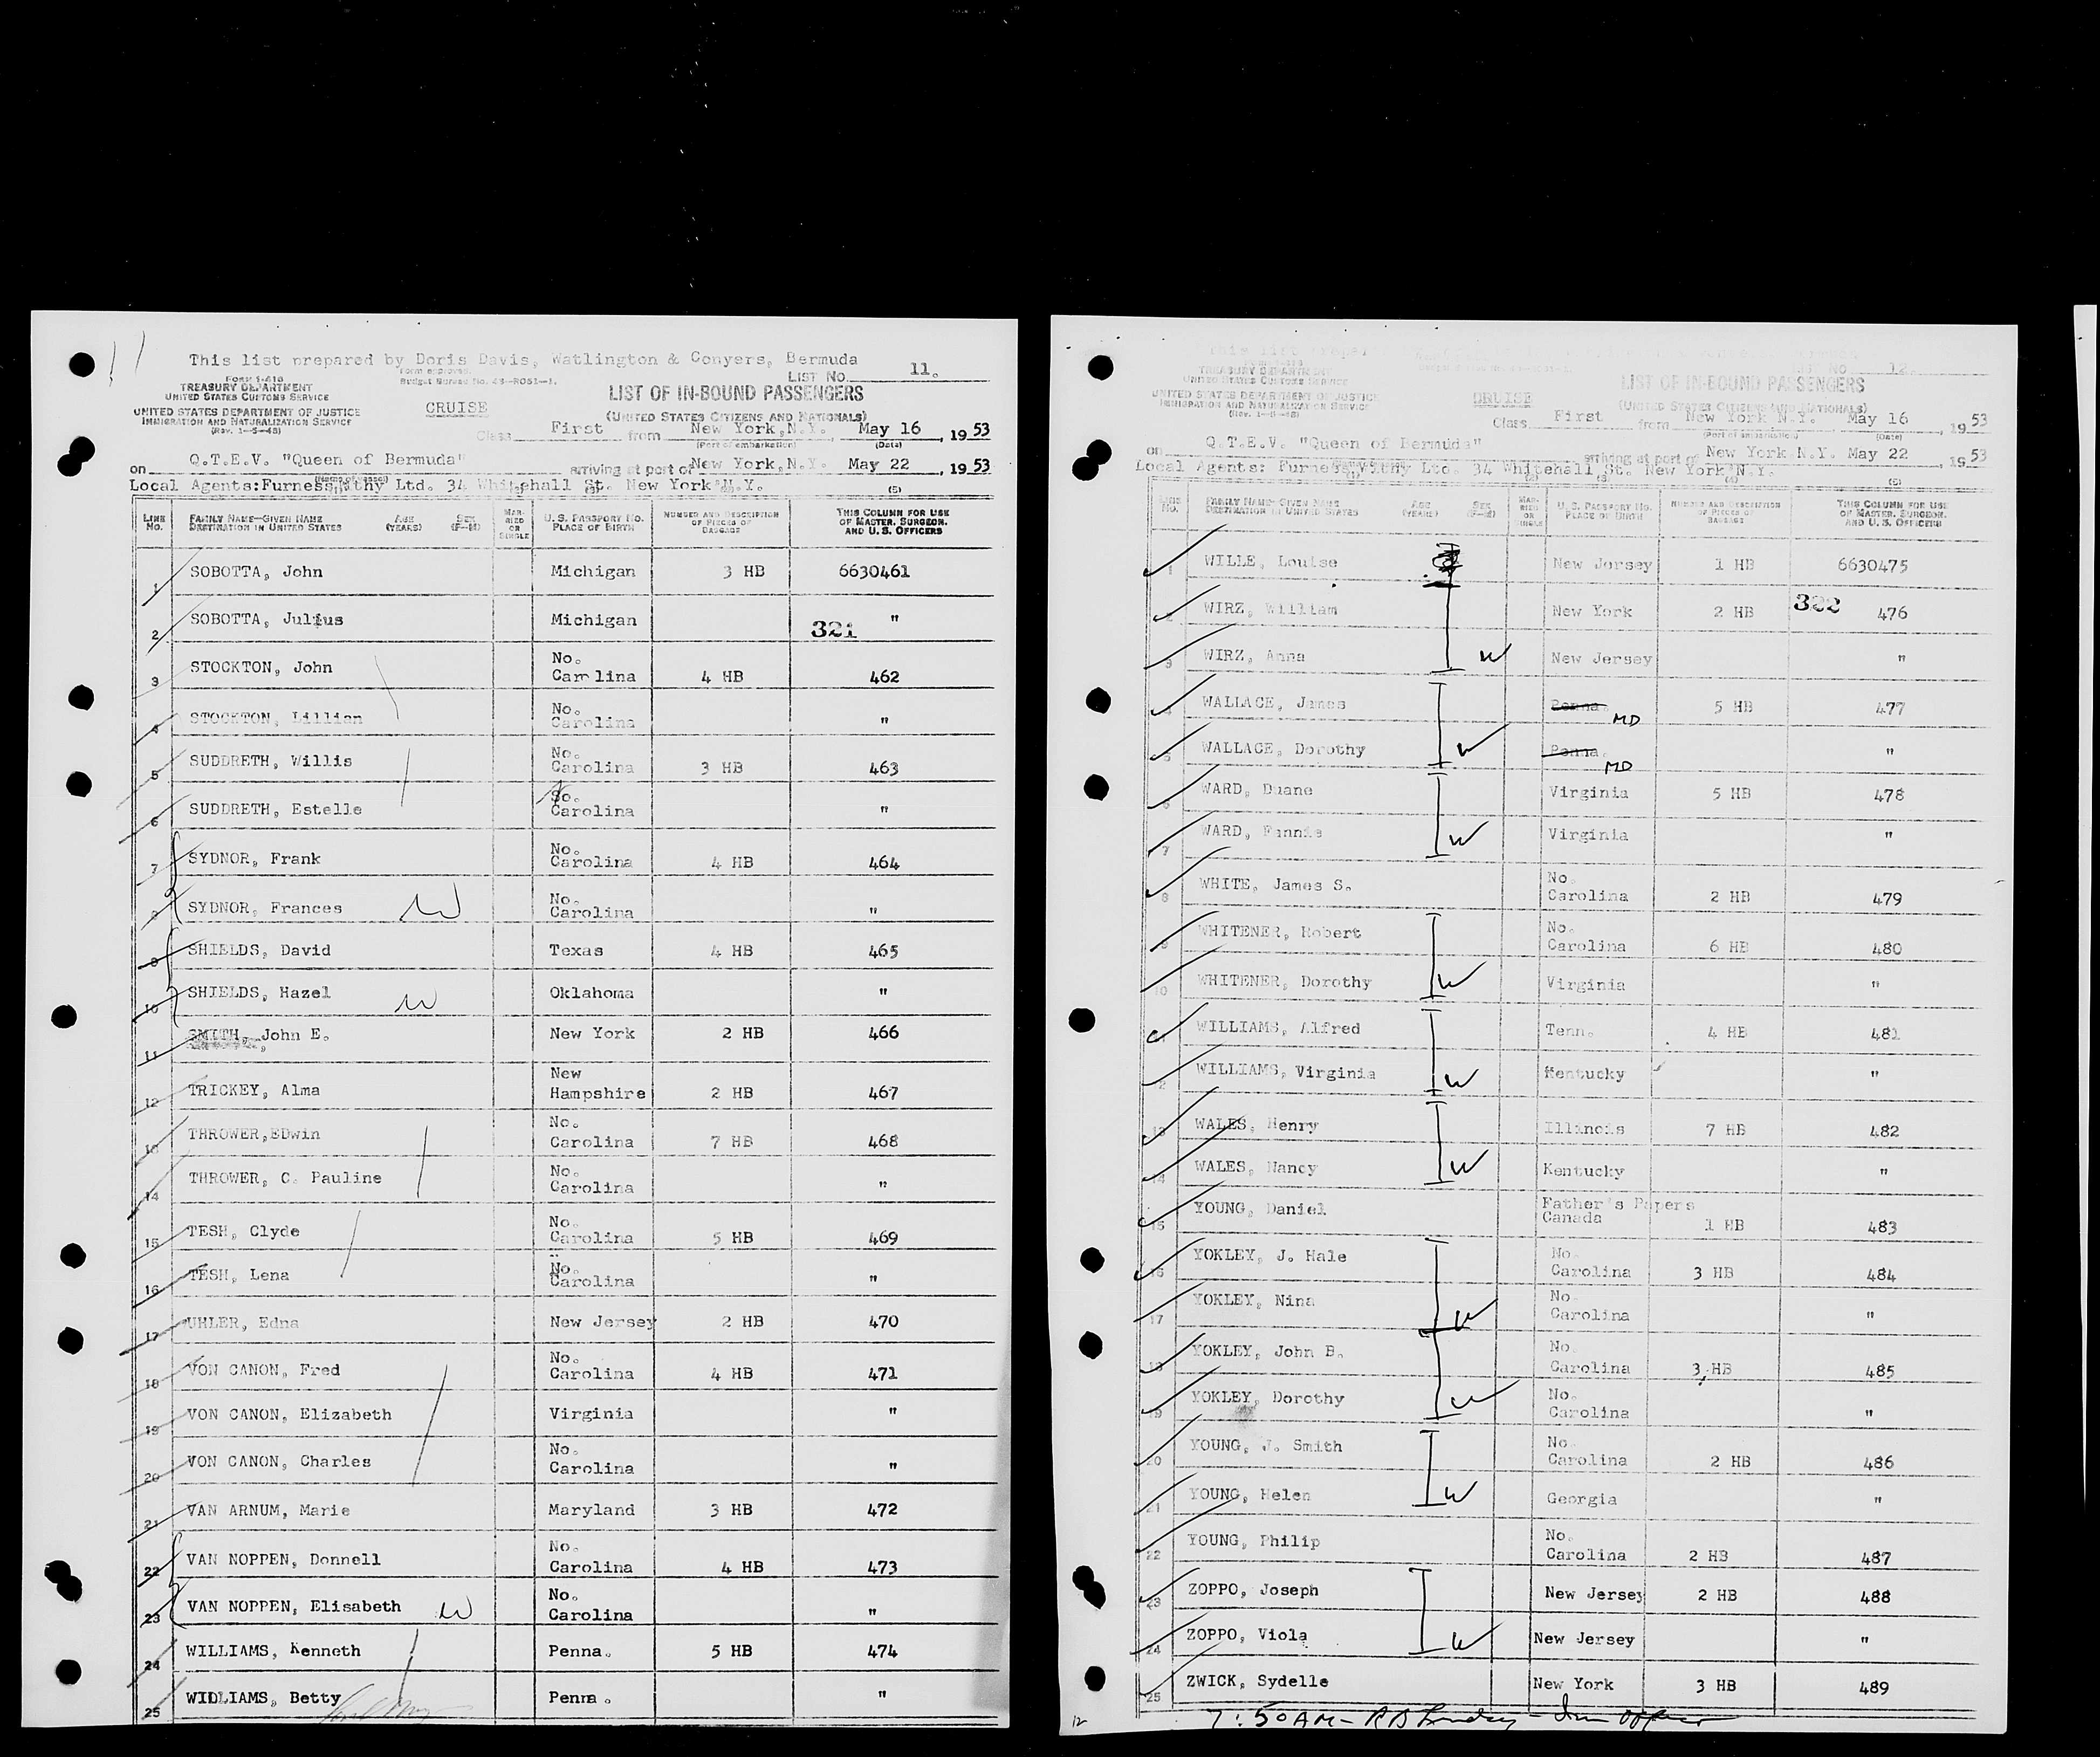 This list prepared by Doris Davis, Watlington & Conyers, Bermuda
LIST No. 11.
Form approved.
Budget Bureau No. 43—R051—1.
TREASURY DEPARTMENT
UNITED STATES CUSTOMS SERVICE
UNITED STATES DEPARTMENT OF JUSTICE
IMMIGRATION AND NATURALIZATION SERVICE
(Rev. 1-5-48)
CRUISE
LIST OF IN-BOUND PASSENGERS
(UNITED STATES CITIZENS AND NATIONALS)
Class First from New York, N.Y. May 16, 1953
(Port of embarkation) (Date)
on Q.T.E.V. "Queen of Bermuda" arriving at port of New York, N.Y. May 22, 1953
Local Agents: Furness Withy Ltd. 34 Whitehall St. New York N.Y.
LINE No. FAMILY NAME—GIVEN NAME DESTINATION IN UNITED STATES AGE (YEARS) SEX (F-M) MARRIED OR SINGLE U.S. PASSPORT NO. PLACE OF BIRTH NUMBER AND DESCRIPTION OF PIECES OF BAGGAGE THIS COLUMN FOR USE OF MASTER, SURGEON, AND U. S. OFFICERS
1 SOBOTTA, John Michigan 3 HB 6630461
2 SOBOTTA, Julius Michigan 321 "
3 STOCKTON, John No. Carolina 4 HB 462
4 STOCKTON, Lillian No. Carolina "
5 SUDDRETH, Willis No. Carolina 3 HB 463
6 SUDDRETH, Estelle So. Carolina "
7 SYDNOR, Frank No. Carolina 4 HB 464
8 SYDNOR, Frances W No. Carolina "
9 SHIELDS, David Texas 4 HB 465
10 SHIELDS, Hazel W Oklahoma "
11 SMITH, John E. New York 2 HB 466
12 TRICKEY, Alma New Hampshire 2 HB 467
13 THROWER, EDwin No. Carolina 7 HB 468
14 THROWER, C. Pauline No. Carolina "
15 TESH, Clyde No. Carolina 5 HB 469
16 TESH, Lena No. Carolina "
17 UHLER, Edna New Jersey 2 HB 470
18 VON CANON, Fred No. Carolina 4 HB 471
19 VON CANON, Elizabeth Virginia "
20 VON CANON, Charles No. Carolina "
21 VAN ARNUM, Marie Maryland 3 HB 472
22 VAN NOPPEN, Donnell No. Carolina 4 HB 473
23 VAN NOPPEN, Elisabeth W No. Carolina "
24 WILLIAMS, Kenneth Penna. 5 HB 474
25 WILLIAMS, Betty Penna. "
LIST No. 12.
TREASURY DEPARTMENT
UNITED STATES CUSTOMS SERVICE
UNITED STATES DEPARTMENT OF JUSTICE
IMMIGRATION AND NATURALIZATION SERVICE
(Rev. 1-5-48)
CRUISE
LIST OF IN-BOUND PASSENGERS
(UNITED STATES CITIZENS AND NATIONALS)
Class First from New York N.Y. May 16, 1953
(Port of embarkation) (Date)
on Q.T.E.V. "Queen of Bermuda" arriving at port of New York N.Y. May 22, 1953
Local Agents: Furness Withy Ltd. 34 Whitehall St. New York N.Y.
LINE No. FAMILY NAME—GIVEN NAME DESTINATION IN UNITED STATES AGE (YEARS) SEX (F-M) MARRIED OR SINGLE U.S. PASSPORT NO. PLACE OF BIRTH NUMBER AND DESCRIPTION OF PIECES OF BAGGAGE THIS COLUMN FOR USE OF MASTER, SURGEON, AND U. S. OFFICERS
1 WILLE, Louise New Jersey 1 HB 6630475
2 WIRZ, William New York 2 HB 322 476
3 WIRZ, Anna W New Jersey "
4 WALLACE, James Penna. MD 5 HB 477
5 WALLACE, Dorothy W Penna. MD "
6 WARD, Duane Virginia 5 HB 478
7 WARD, Fannie W Virginia "
8 WHITE, James S. No. Carolina 2 HB 479
9 WHITENER, Robert No. Carolina 6 HB 480
10 WHITENER, Dorothy W Virginia "
11 WILLIAMS, Alfred Tenn. 4 HB 481
12 WILLIAMS, Virginia W Kentucky "
13 WALES, Henry Illinois 7 HB 482
14 WALES, Nancy W Kentucky "
15 YOUNG, Daniel Father's Papers Canada 1 HB 483
16 YOKLEY, J. Hale No. Carolina 3 HB 484
17 YOKLEY, Nina W No. Carolina "
18 YOKLEY, John B. No. Carolina 3 HB 485
19 YOKLEY, Dorothy W No. Carolina "
20 YOUNG, J. Smith No. Carolina 2 HB 486
21 YOUNG, Helen W Georgia "
22 YOUNG, Philip No. Carolina 2 HB 487
23 ZOPPO, Joseph New Jersey 2 HB 488
24 ZOPPO, Viola W New Jersey "
25 ZWICK, Sydelle New York 3 HB 489
12
7:50 AM -